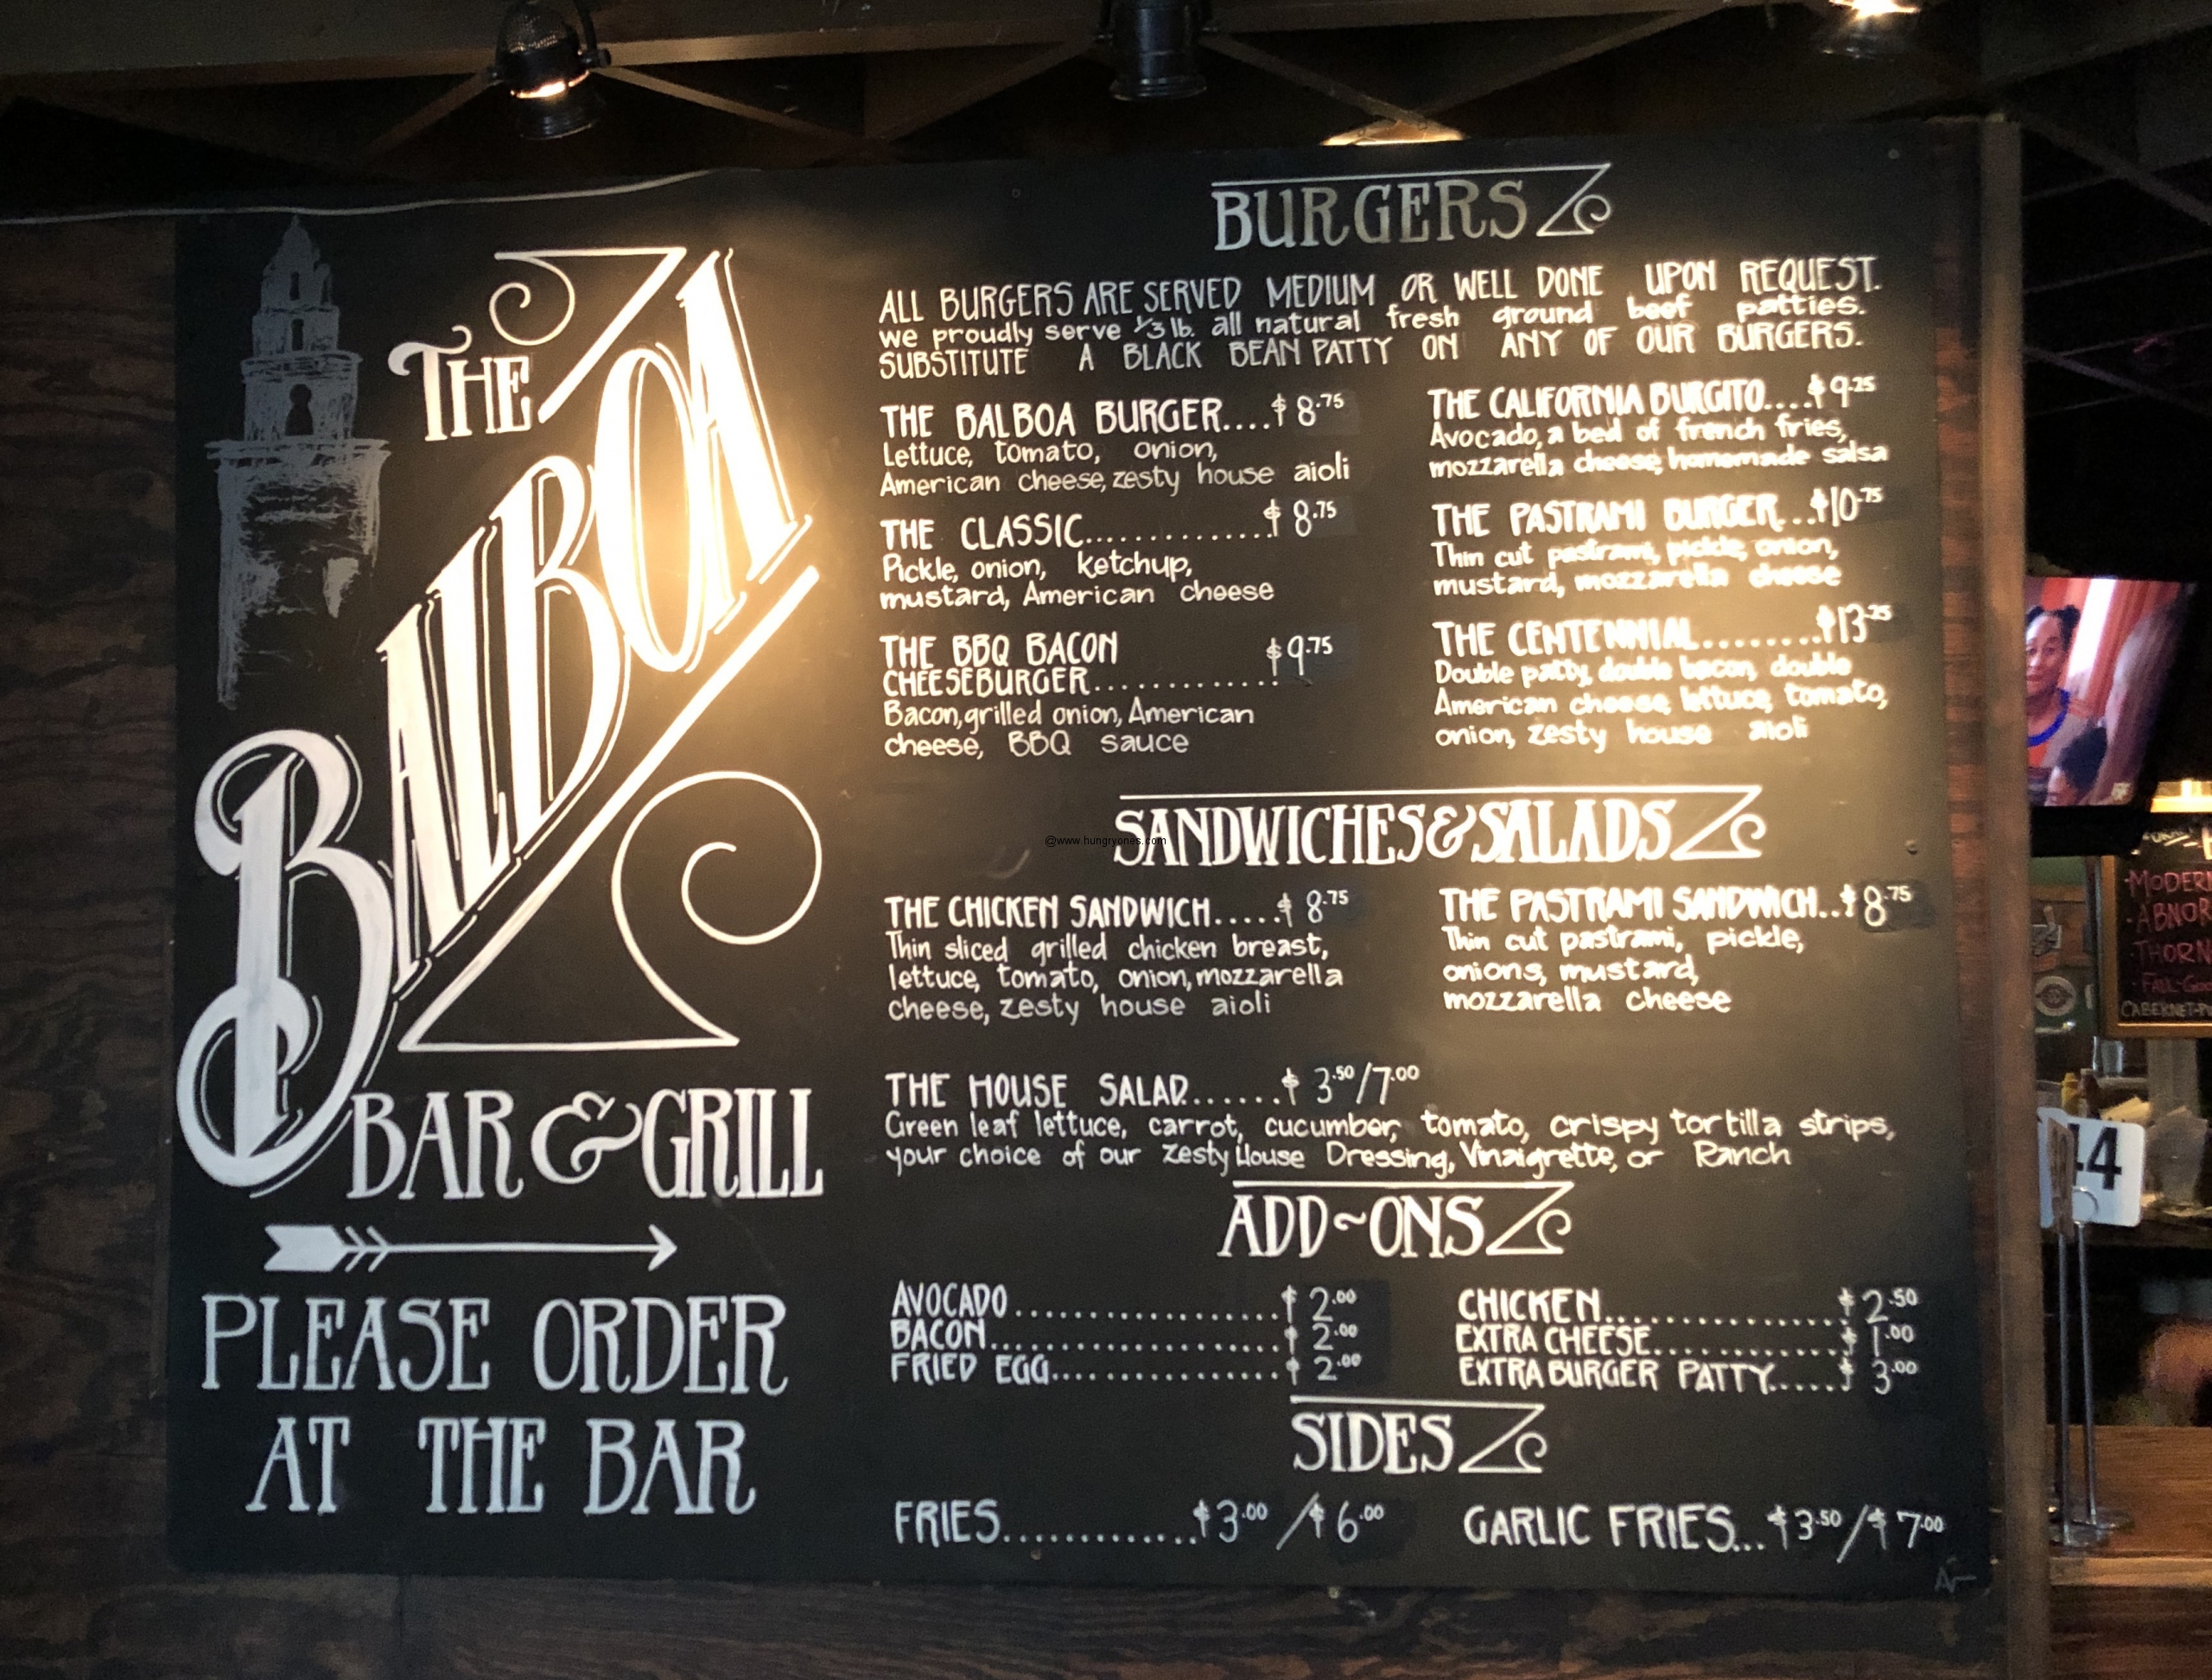 THE
BALBOA
BAR & GRILL
PLEASE ORDER
AT THE BAR
BURGERS
ALL BURGERS ARE SERVED MEDIUM OR WELL DONE UPON REQUEST.
we proudly serve 1/3 lb. all natural fresh ground beef patties.
SUBSTITUTE A BLACK BEAN PATTY ON ANY OF OUR BURGERS.
THE BALBOA BURGER....$8.75
Lettuce, tomato, onion,
American cheese, zesty house aioli
THE CLASSIC..............$8.75
Pickle, onion, ketchup,
mustard, American cheese
THE BBQ BACON
CHEESEBURGER.............$9.75
Bacon, grilled onion, American
cheese, BBQ sauce
THE CALIFORNIA BURGITO....$9.25
Avocado, a bed of french fries,
mozzarella cheese, homemade salsa
THE PASTRAMI BURGER...$10.75
Thin cut pastrami, pickle, onion,
mustard, mozzarella cheese
THE CENTENNIAL........$13.25
Double patty, double bacon, double
American cheese, lettuce, tomato,
onion, zesty house aioli
SANDWICHES & SALADS
@www.hungryones.com
THE CHICKEN SANDWICH.....$8.75
Thin sliced grilled chicken breast,
lettuce, tomato, onion, mozzarella
cheese, zesty house aioli
THE PASTRAMI SANDWICH..$8.75
Thin cut pastrami, pickle,
onions, mustard,
mozzarella cheese
THE HOUSE SALAD.......$3.50/7.00
Green leaf lettuce, carrot, cucumber, tomato, crispy tortilla strips,
your choice of our zesty House Dressing, Vinaigrette, or Ranch
ADD~ONS
AVOCADO....................$2.00
BACON......................$2.00
FRIED EGG.................$2.00
CHICKEN..................$2.50
EXTRA CHEESE..............$1.00
EXTRA BURGER PATTY.....$3.00
SIDES
FRIES.............$3.00/$6.00
GARLIC FRIES...$3.50/$7.00
44